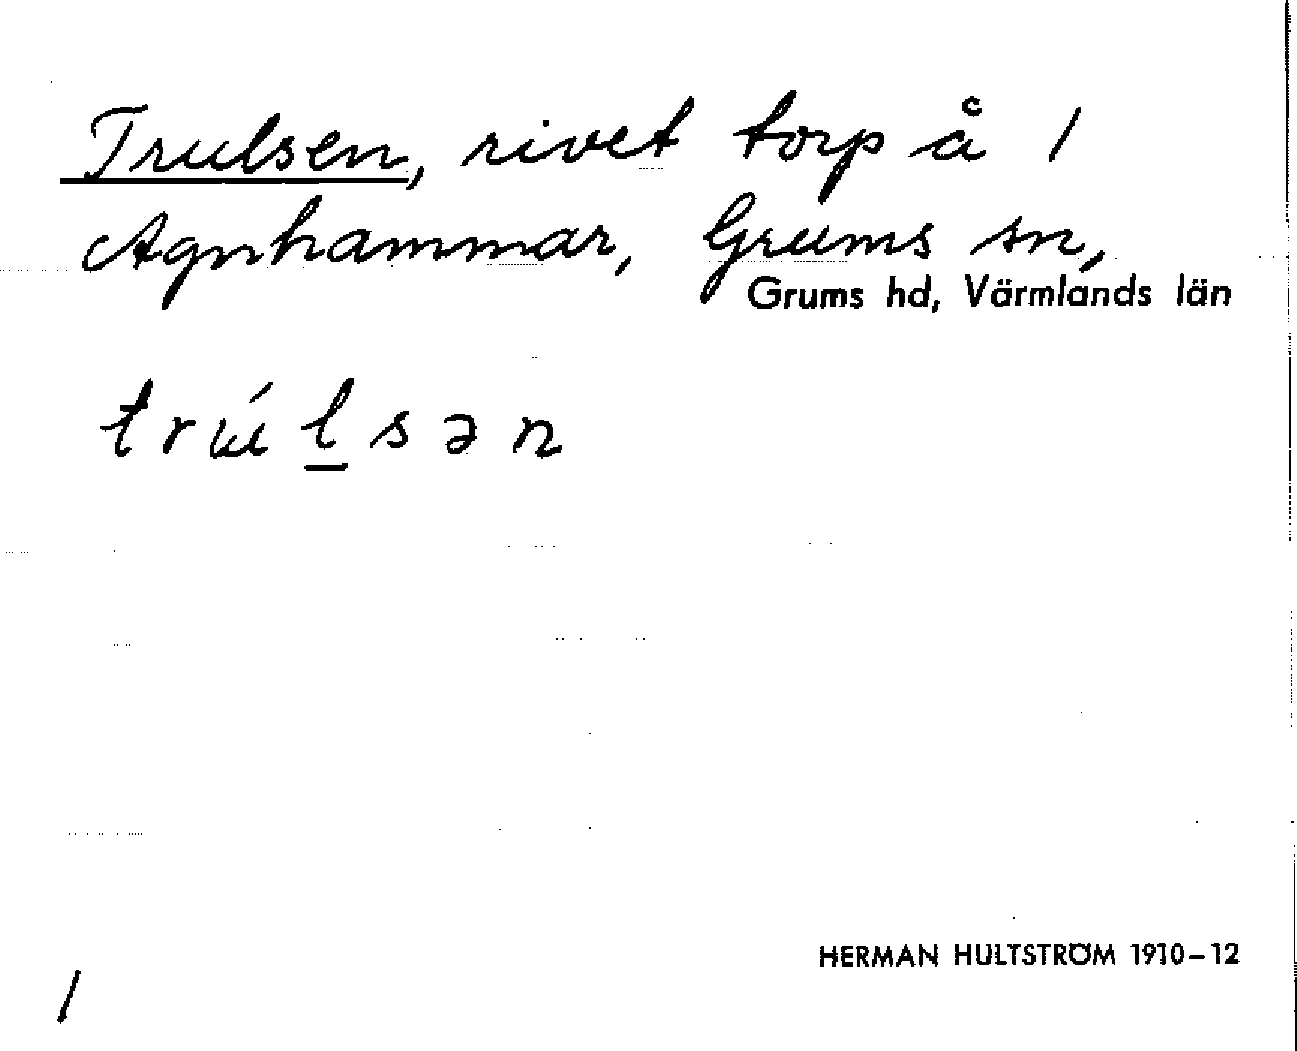 Trulsen, rivet torp å /
Agnhammar, Grums sn,
Grums hd, Värmlands län
trúlsən
HERMAN HULTSTRÖM 1910–12
/